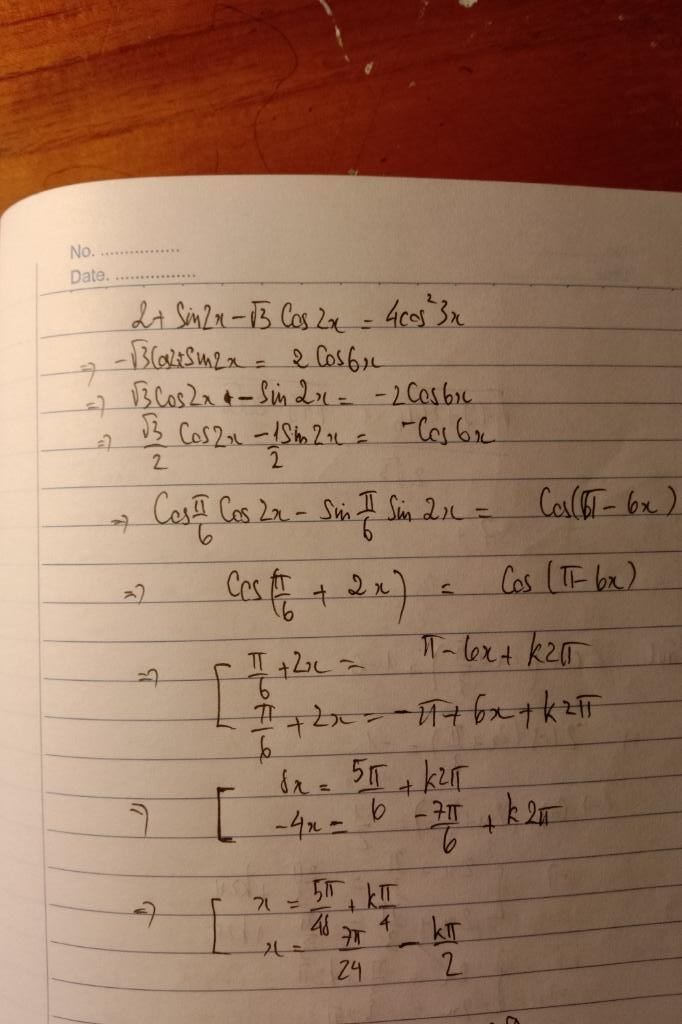 No. ...............
Date. ................
2+ Sin2x - √3 Cos2x = 4cos²3x
=> -√3Cos2x+Sin2x = 2 Cos6x
=> √3Cos2x - Sin2x = -2Cos6x
=> √3/2 Cos2x - 1/2 Sin2x = -Cos6x
=> Cos π/6 Cos2x - Sin π/6 Sin 2x = Cos(π - 6x)
=> Cos(π/6 + 2x) = Cos(π-6x)
=> [ π/6 + 2x = π - 6x + k2π
π/6 + 2x = -π + 6x + k2π
=> [ 8x = 5π/6 + k2π
-4x = -7π/6 + k2π
=> [ x = 5π/48 + kπ/4
x = 7π/24 - kπ/2